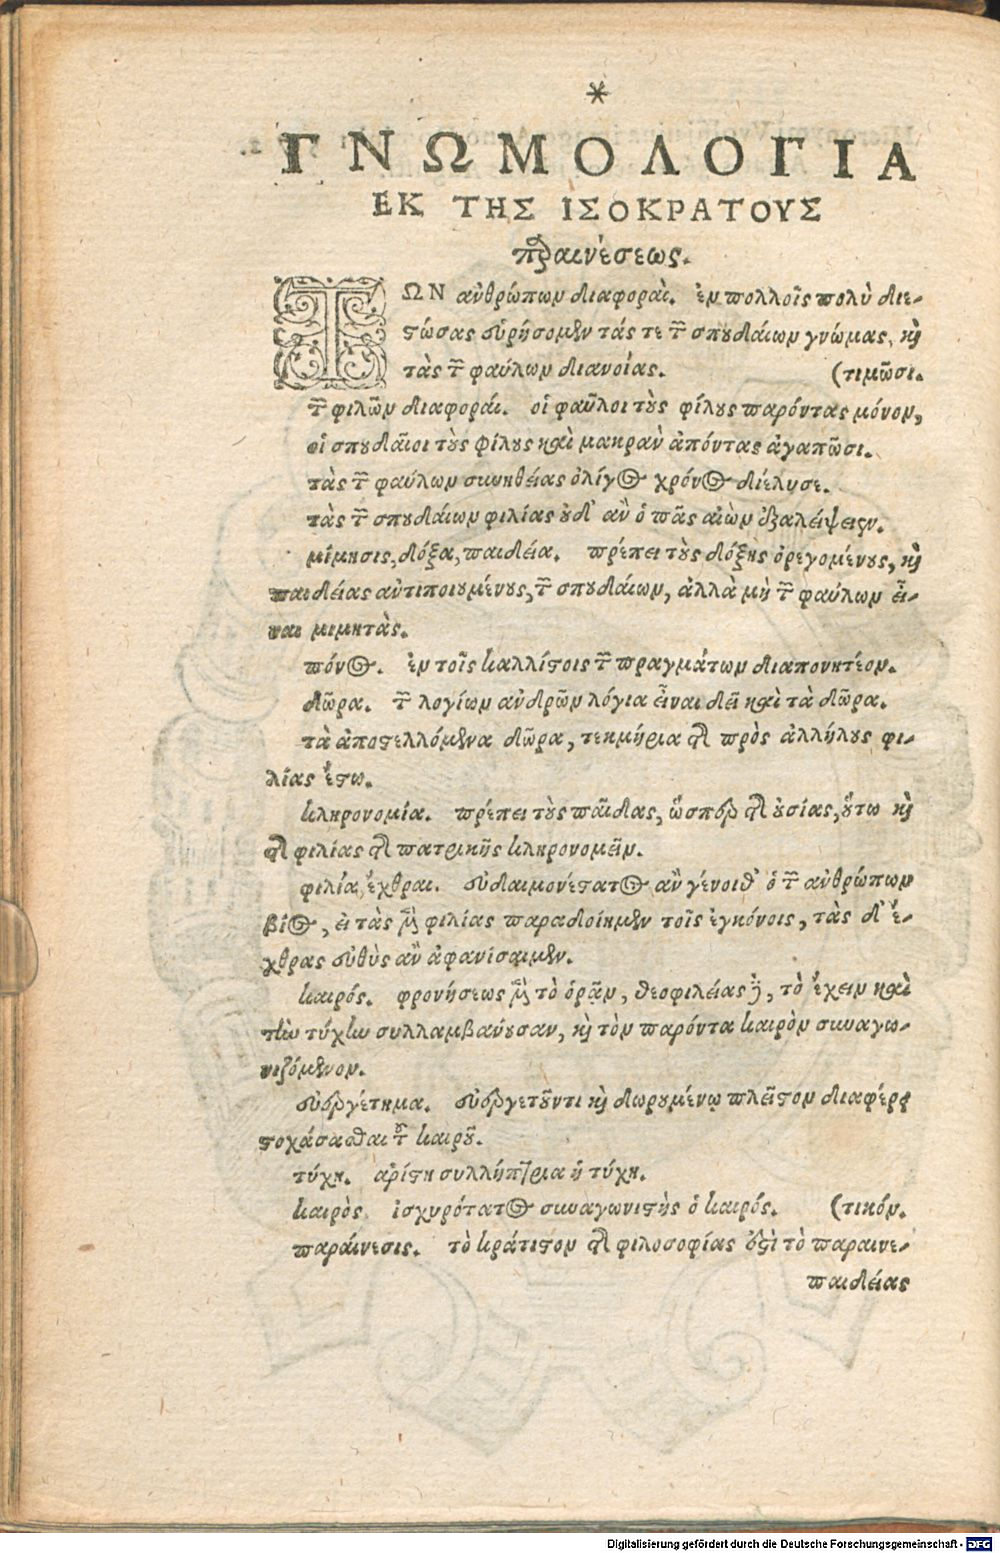 *
ΓΝΩΜΟΛΟΓΙΑ
ΕΚ ΤΗΣ ΙΣΟΚΡΑΤΟΥΣ
παραινέσεως.
ΤΩΝ ἀνθρώπων διαφοραὶ. ἐν πολλοῖς πολὺ διε-
στώσας εὑρήσομεν τάς τε τῶν σπουδαίων γνώμας, καὶ
τὰς τῶν φαύλων διανοίας. (τιμῶσι.
τῶν φιλῶν διαφοραί. οἱ φαῦλοι τοὺς φίλους παρόντας μόνον,
οἱ σπουδαῖοι τοὺς φίλους καὶ μακρὰν ἀπόντας ἀγαπῶσι.
τὰς τῶν φαύλων συνηθείας ὀλίγος χρόνος διέλυσε.
τὰς τῶν σπουδαίων φιλίας οὐδ' ἂν ὁ πᾶς αἰὼν ἐξαλείψειεν.
μίμησις, δόξα, παιδεία. πρέπει τοὺς δόξης ὀρεγομένους, καὶ
παιδείας ἀντιποιουμένους, τῶν σπουδαίων, ἀλλὰ μὴ τῶν φαύλων εἶ-
ναι μιμητὰς.
πόνος. ἐν τοῖς καλλίστοις τῶν πραγμάτων διαπονητέον.
δῶρα. τῶν λογίων ἀνδρῶν λόγια εἶναι δεῖ καὶ τὰ δῶρα.
τὰ ἀποστελλόμενα δῶρα, τεκμήρια τῆς πρὸς ἀλλήλους φι-
λίας ἔστω.
κληρονομία. πρέπει τοὺς παῖδας, ὥσπερ τῆς οὐσίας, οὕτω καὶ
τῆς φιλίας τῆς πατρικῆς κληρονομεῖν.
φιλία, ἔχθραι. εὐδαιμονέστατος ἂν γένοιθ' ὁ τῶν ἀνθρώπων
βίος, εἰ τὰς μὲν φιλίας παραδοίημεν τοῖς ἐγκόνοις, τὰς δ' ἔ-
χθρας εὐθὺς ἂν ἀφανίσαιμεν.
καιρός. φρονήσεως μὲν τὸ ὁρᾷν, θεοφιλείας δὲ, τὸ ἔχειν καὶ
τὴν τύχην συλλαμβάνουσαν, καὶ τὸν παρόντα καιρὸν συναγω-
νιζόμενον.
εὐεργέτημα. εὐεργετοῦντι καὶ δωρουμένῳ πλεῖστον διαφέρει
στοχάσασθαι τοῦ καιροῦ.
τύχη. ἀρίστη συλλήπτρια ἡ τύχη.
καιρὸς ἰσχυρότατος συναγωνιστὴς ὁ καιρός. (τικόν.
παραίνεσις. τὸ κράτιστον τῆς φιλοσοφίας ἐστὶ τὸ παραινε-
παιδείας
Digitalisierung gefördert durch die Deutsche Forschungsgemeinschaft - DFG